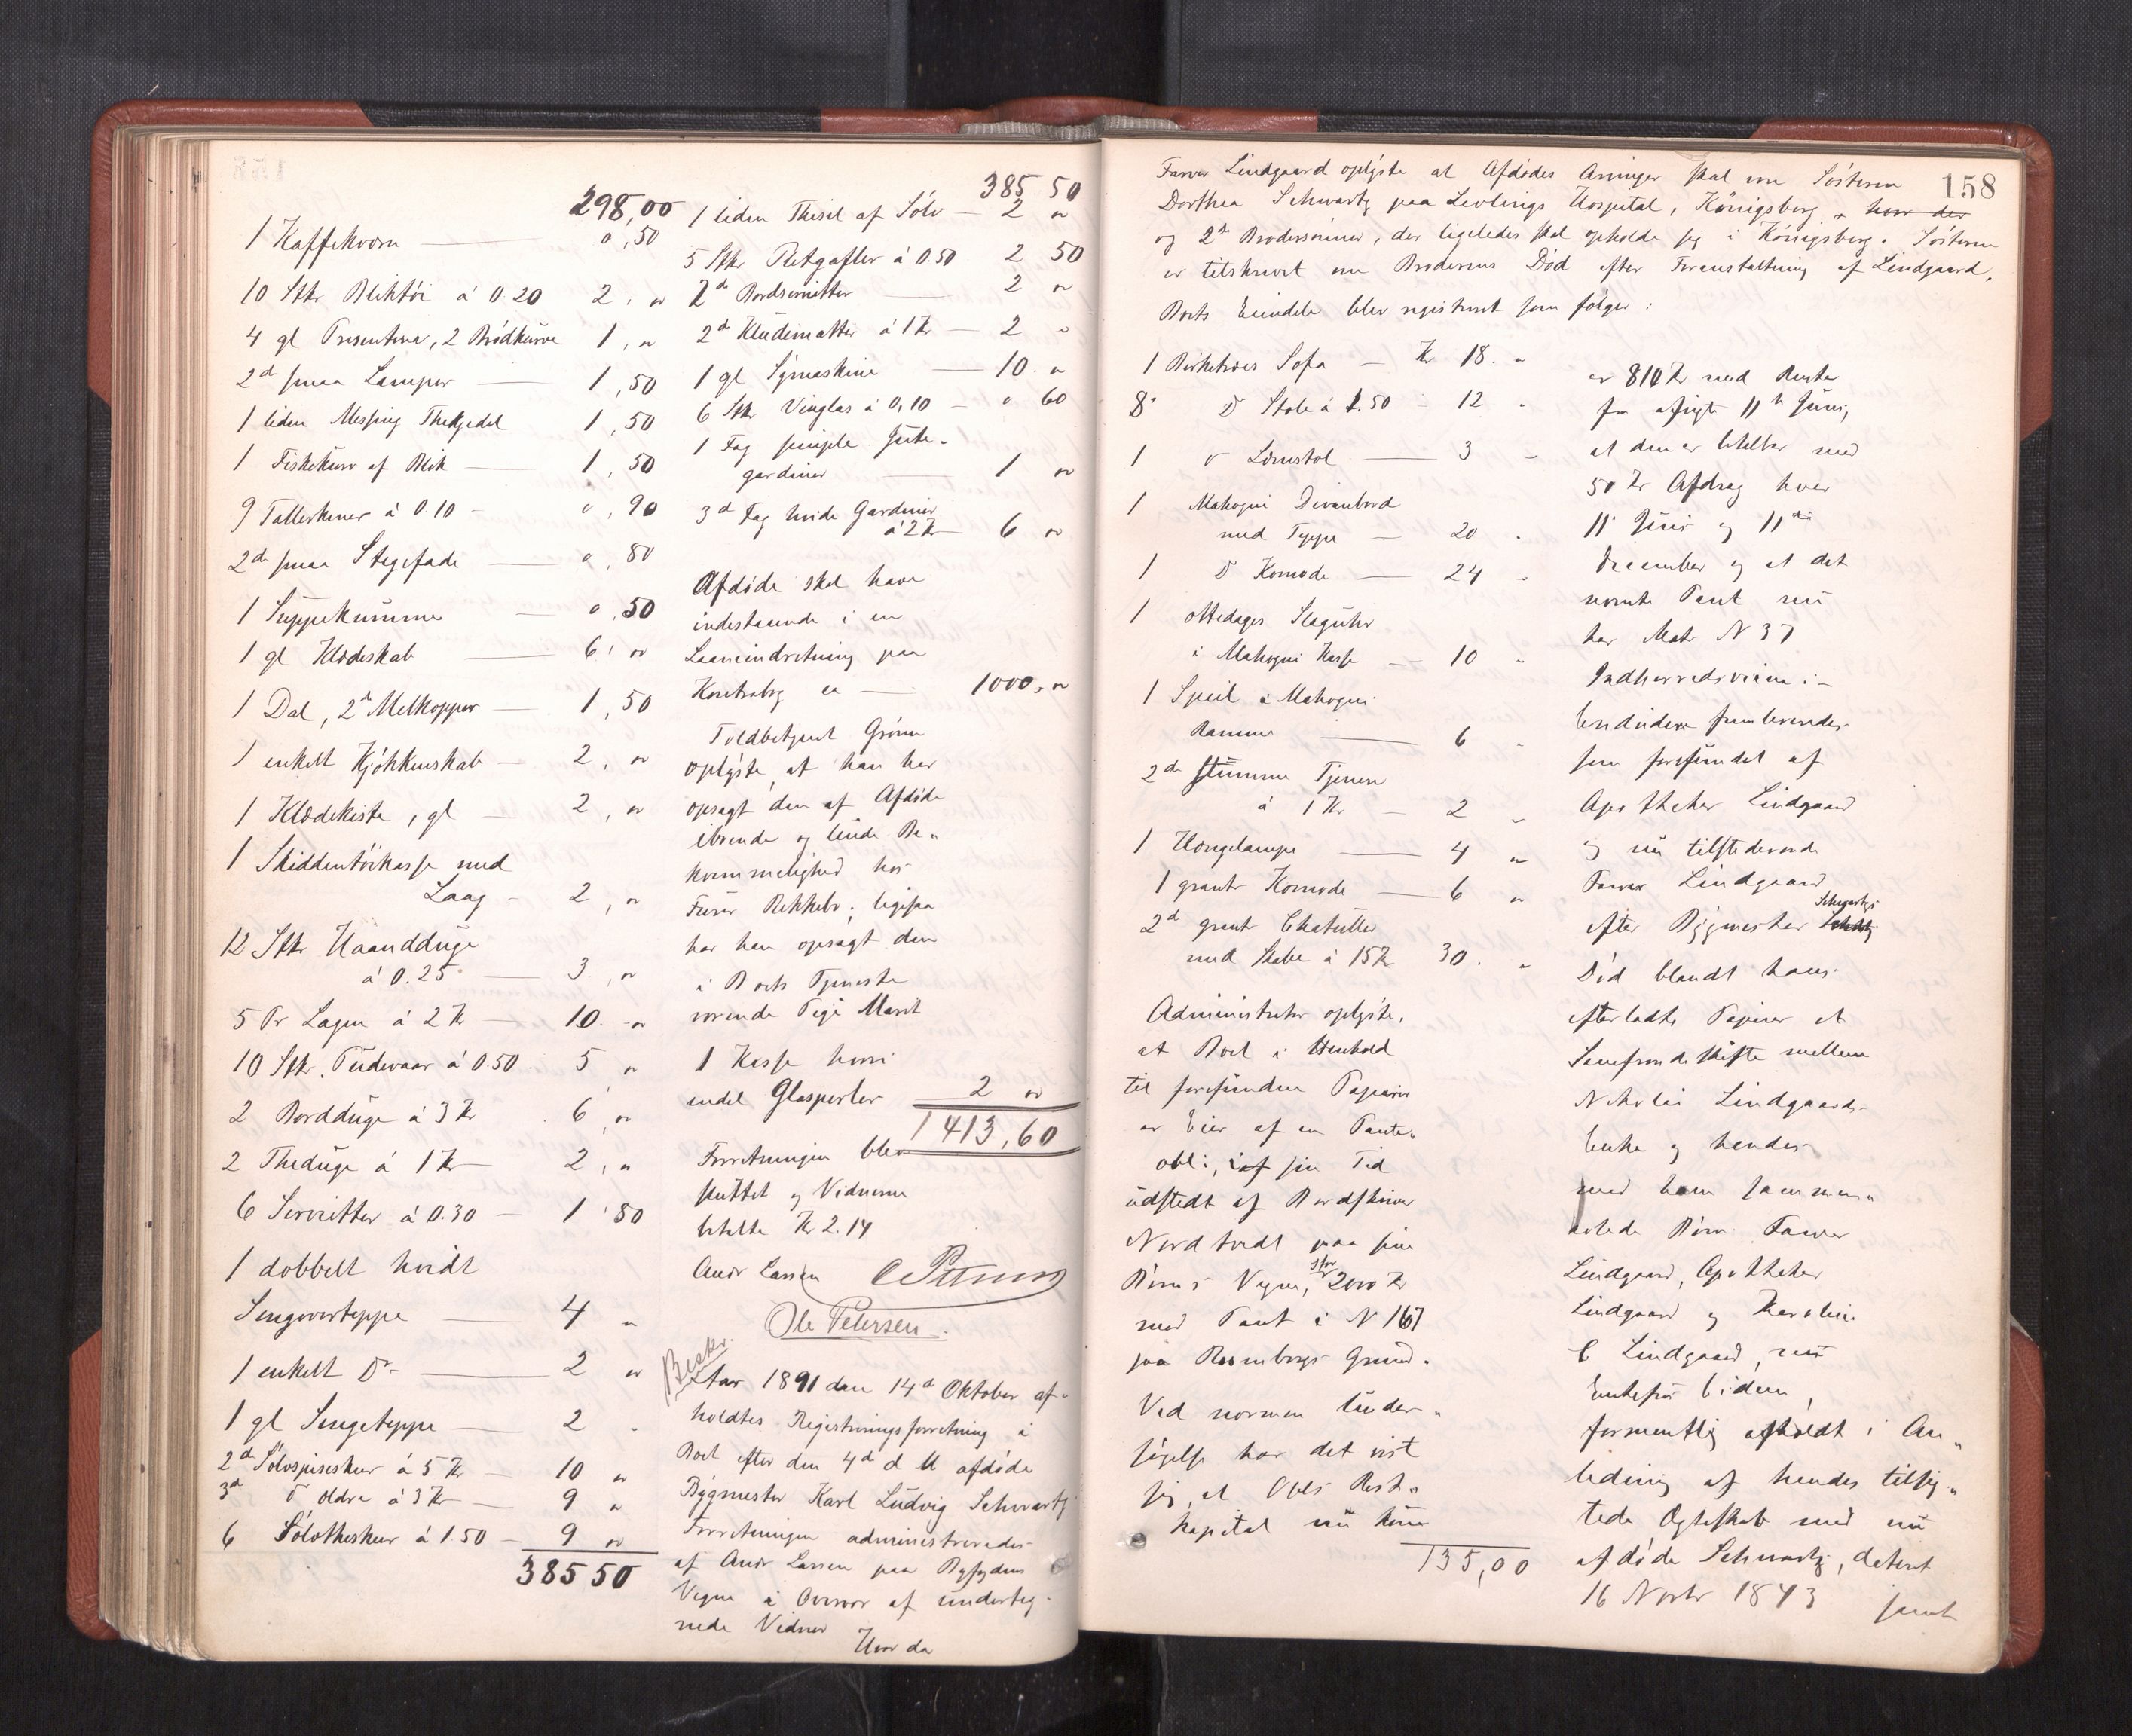 298,00
1 Kaffekværn — 0,50
10 Stkr Bliktöi á 0.20 2, "
4 gl Presentera, 2 Brödkurve 1, "
2d smaa Lamper — 1,50
1 liden Messing Thekjedel 1,50
1 Fiskekurv af Blik — 1,50
9 Tallerkener á 0.10 - 0,90
2de smaa Stegefade — 0,80
1 Suppekumme — 0,50
1 gl Klædeskab — 6, "
1 Dal, 2d Melkopper — 1,50
1 enkelt Kjökkenskab — 2, "
1 Klædekiste, gl — 2, "
1 Skiddentöikasse med
Laag - 2, "
12 Stkr Haandduge
á 0.25 — 3, "
5 Pr Lagen á 2 Kr — 10. "
10 Stkr. Pudevaar á 0.50 5 "
2 Bordduge á 3 Kr 6, "
2 Theduge á 1 Kr — 2, "
6 Servietter á 0.30 — 1,80
1 dobbelt hvidt
Sengeverteppe — 4 "
1 enkelt Do — 2 "
1 gl Sengeteppe — 2 "
2d Sölvspiseskeer á 5 Kr — 10 "
3d do ældre á 3 Kr — 9 "
6 Sölvtheskeer á 1.50 — 9 "
385 50
385 50
1 liden Thesil af Sölv — 2 "
5 Stkr Pletgafler á 0.50 2 50
2d Bordservietter — 2 "
2d Kludematter á 1 Kr — 2 "
1 gl Symaskine — 10. "
6 Stkr Vinglas á 0,10 — " 60
1 Fag simple Jute-
gardiner — 1 "
3d Fag hvide Gardiner
á 2 Kr — 6 "
Afdöde skal have
indestaaende i en
Laaneindretning paa
ca — 1000, "
Toldbetjent Grönn
oplyste, at han har
opsagt den af Afdöde
iboende og leiede Be-
kvemmelighed hos
Furer Bekkebo; ligesaa
har han opsagt den
i Boets Tjeneste
værende Pige Marit
1 Kasse hvori
endel Glasperler 2 "
1413,60
Forretningen blev
sluttet og Vidnerne
betalte Kr 2.14
Andr Larsen O Petersen
Ole Petersen.
Beskr.
Aar 1891 den 14d Oktober af-
holdtes Registreringsforretning i
Boet efter den 4d d M afdöde
Bygmester Karl Ludvig Schwartz
Forretningen administreredes
af Andr Larsen paa Byfogdens
Vegne i Overvær af underteg-
nede Vidner
Hvor da
158
Farver Lindgaard oplyste at Afdödes Arvinger skal være Sösteren
Dorthea Schwartz paa Hospital, Königsberg, hvor der
og 2d Brodersönner, der ligeledes skal opholde sig i Königsberg. Sösteren
er tilskrevet om Broderens Död efter Foranstaltning af Lindgaard.
Boets Eiendele blev registreret som fölger:
1 Birketræs Sofa — Kr 18. "
8. Do Stole á 1.50 — 12 "
1 do Lænstol — 3 "
1 Mahogni Divanbord
med Teppe — 20 "
1 Do Komode — 24 "
1 ottedages Slaguhr
i Mahogni Kasse — 10 "
1 Speil i Mahogni
Ramme — 6 "
2de stumme Tjenere
á 1 Kr — 2 "
1 Hængelampe — 4 "
1 grante Komode — 6 "
2d grant Chatuller
med Skabe á 15 Kr 30. "
Administrator oplyste,
at Boet i Henhold
til forefundne Papirer
er Eier af en Pante-
obl:, i sin Tid
udstedt af Bordskriver
Nordtvedt paa sine
Börns Vegne, stor 2000 Kr
med Pant i N 167
paa Rosenborgs Grund.
Ved nærmere Under-
sögelse har det vist
sig, at Obls Rest-
kapital nu kun
135,00
er 810 Kr med Rente
fra afvigte 11te Juni,
at den er betalbar med
50 Kr Afdrag hver
11 Juni og 11te
December og at det
nævnte Pant nu
har Matr N 37
Indherredsveien: -
Endvidere fremleveredes
som forefundet af
Apotheker Lindgaard
og nu tilstedeværende
Farver Lindgaard
efter Bygmester Schwartz's
Död blandt hans
efterladte Papirer et
Samfrændeskifte mellem
Nikolai Lindgaards
Enke og hendes
med ham sammen-
avlede Börn Farver
Lindgaard, Apotheker
Lindgaard og Karoline
C Lindgaard, nu
Enkefru Eidem,
formentlig afholdt i An-
ledning af hendes tilsig-
tede Ægteskab med nu
afdöde Schwartz, dateret
16 Novbr 1873 samt